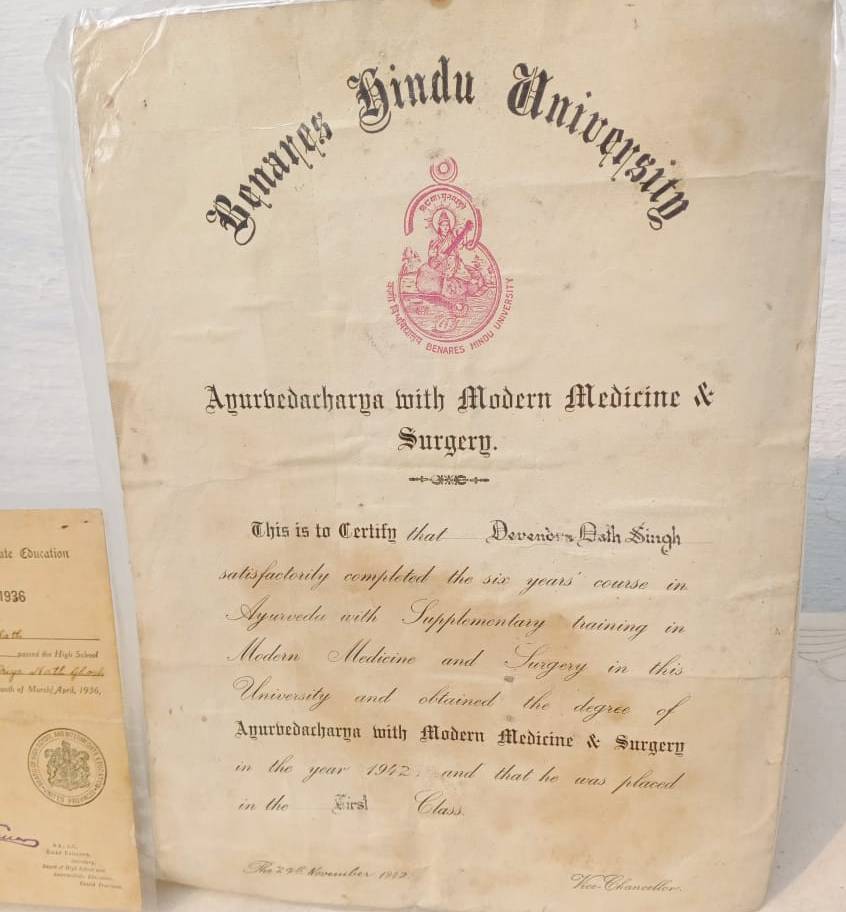 Benares Hindu University
BENARES HINDU UNIVERSITY
Ayurvedacharya with Modern Medicine &
Surgery.
This is to Certify that Devendra Nath Singh
satisfactorily completed the six years' course in
Ayurveda with Supplementary training in
Modern Medicine and Surgery in this
University and obtained the degree of
Ayurvedacharya with Modern Medicine & Surgery
in the year 1942 and that he was placed
in the First Class.
The November 1942
Vice-Chancellor.
ate Education
1936
passed the High School
Nath
of March/April, 1936,
UNITED PROVINCES
Secretary,
Board of High School and
Intermediate Education,
United Provinces